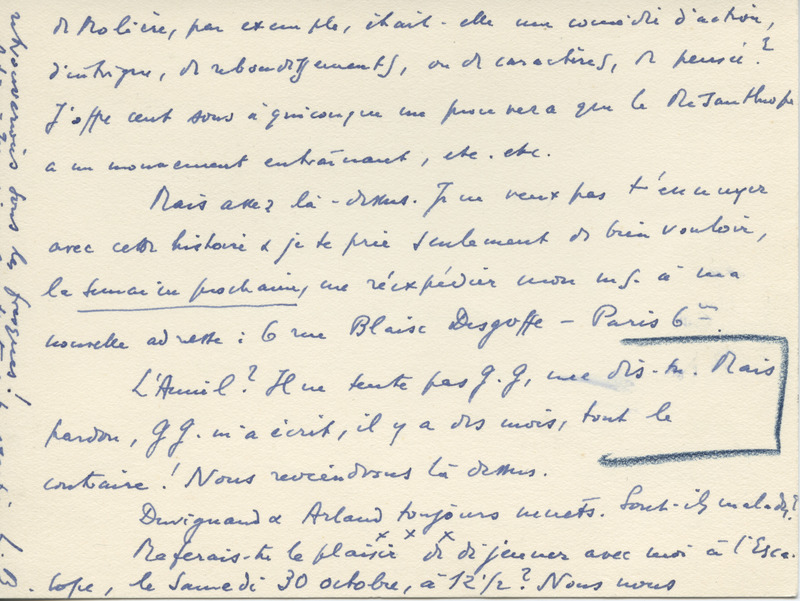 de Molière, par exemple, était-elle une comédie d'action,
d'intrigue, de rebondissements, ou de caractères, de pensée ?
J'offre cent sous à quiconque me prouvera que le Misanthrope
a un mouvement entraînant, etc. etc.
Mais assez là-dessus. Je ne veux pas t'ennuyer
avec cette histoire & je te prie seulement de bien vouloir,
la semaine prochaine, me réexpédier mon ms. à ma
nouvelle adresse : 6 rue Blaise Desgoffe – Paris 6
L'Amiel ? Il ne tente pas G.G, me dis-tu. Mais
pardon, GG. m'a écrit, il y a des mois, tout le
contraire ! Nous reviendrons là dessus.
Duvignaud & Arland toujours muets. Sont-ils malades ?
Me ferais-tu le plaisir de déjeuner avec moi à l'Esca-
lope, le Samedi 30 octobre, à 12 1/2 ? Nous nous
retrouverions dans les